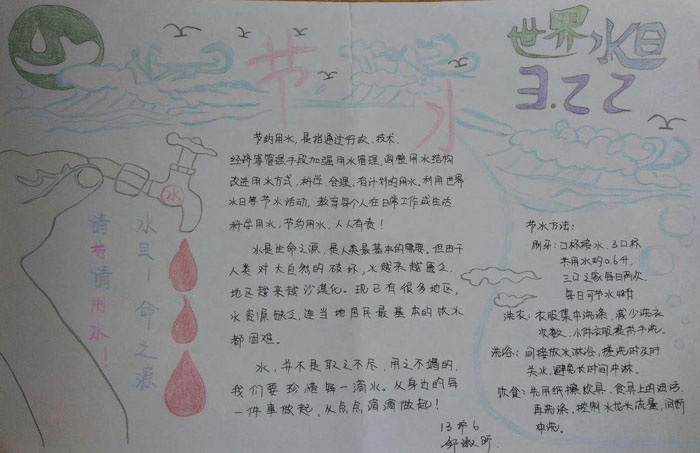 世界水日
3.22
节
水
节约用水，是指通过行政、技术、
经济等管理手段加强用水管理，调整用水结构
改进用水方式，科学、合理、有计划的用水。利用世界
水日等节水活动，教育每个人在日常工作或生活
科学用水，节约用水，人人有责！
水是生命之源，是人类最基本的需要。但由于
人类对大自然的破坏，水越来越匮乏，
地区越来越沙漠化。现已有很多地区，
水资源缺乏，连当地居民最基本的饮水
都困难。
水，并不是取之不尽、用之不竭的，
我们要珍惜每一滴水。从身边的每
一件事做起、从点点滴滴做起！
水
水是一命之源
请节请用水！
节水方法：
刷牙：口杯接水，3口杯
用水约0.6升，
三口之家每日两次，
每日可节水
洗衣：衣服集中洗涤，减少洗衣
次数，小件衣服提前手洗。
洗浴：间接放水淋浴，搓洗时及时
关水，避免长时间冲淋。
饮食：先用纸擦炊具、食具上的油污，
再洗涤，控制水龙头流量，间断
冲洗。